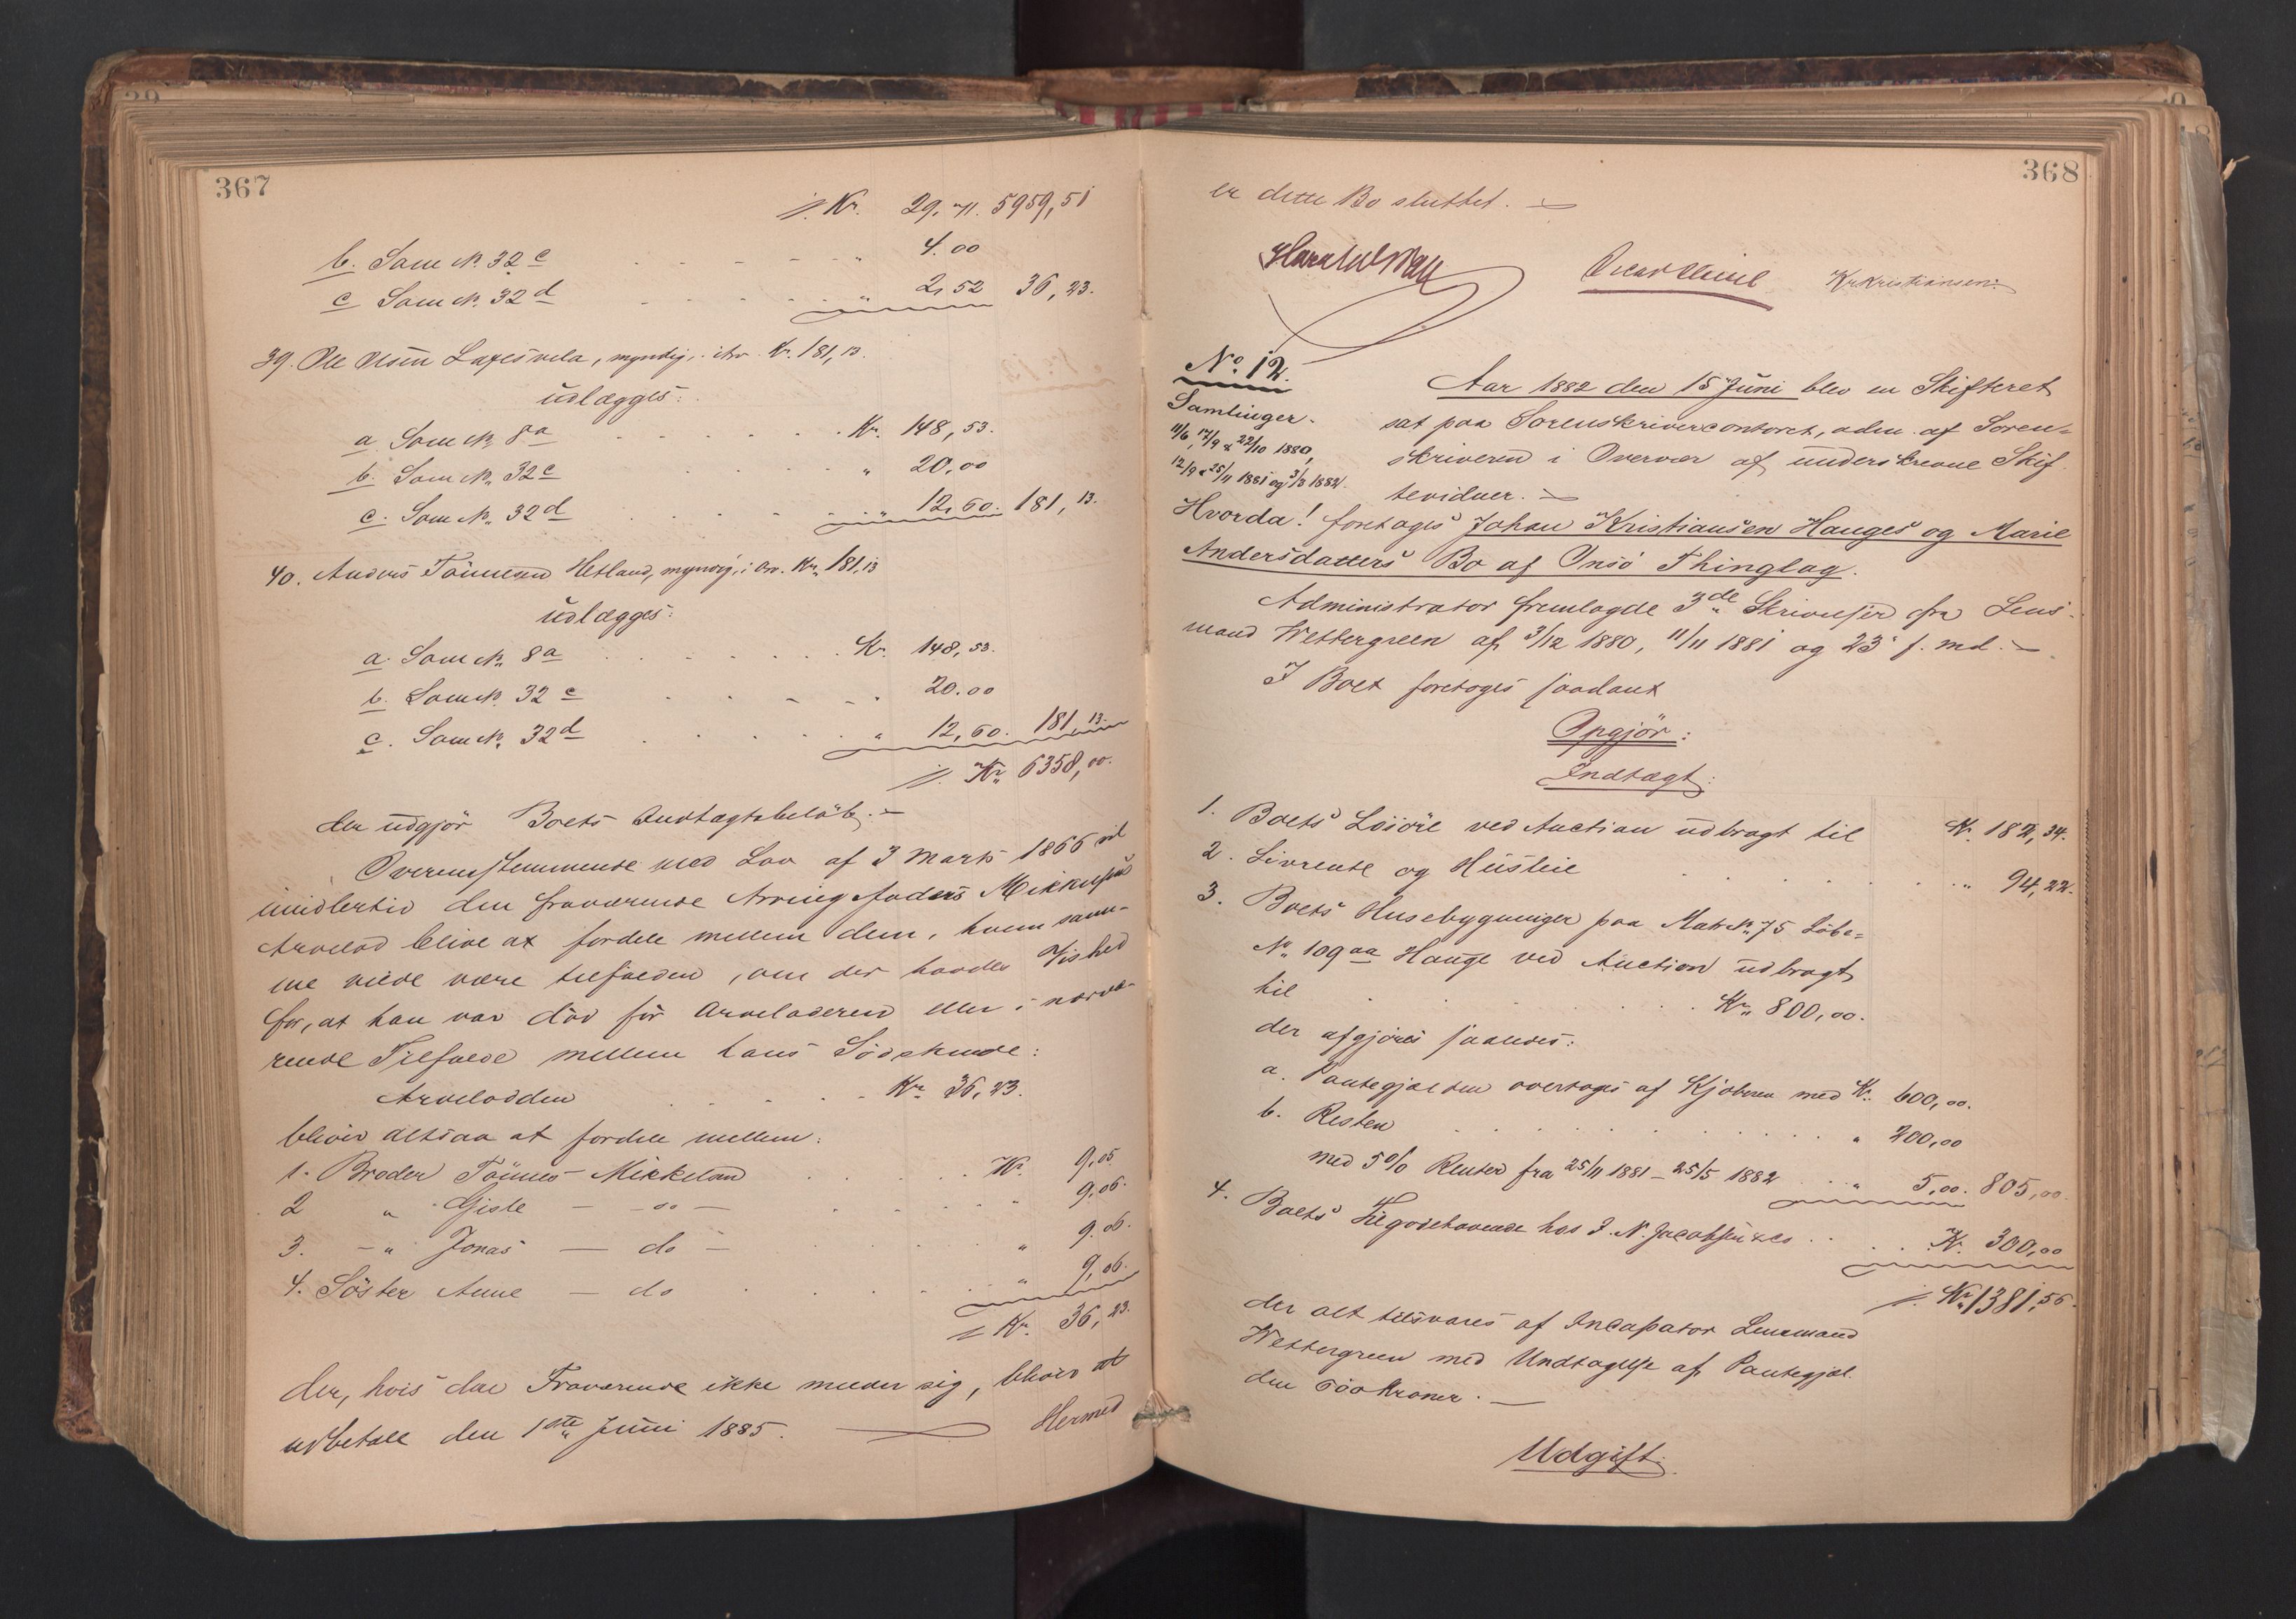 367
://: Kr. 29.71. 5959,51
b. Som N. 32 c . . . . . " 4.00
c Som N. 32 d . . . . . " 2,52 36,23.
39. Ole Olsen , myndig, i Arv. Kr. 181,13.
udlægges:
a Som N. 8a . . . . . Kr. 148,53.
b. Som N. 32 c . . . . . " 20,00
c. Som N. 32 d . . . . . " 12,60. 181,13.
40. Anders Tönnesen Hetland, myndig, i Arv. Kr. 181,13
udlægges:
a. Som N. 8a . . . . . Kr. 148,53.
b. Som N. 32 c . . . . . " 20.00
c. Som N. 32 d . . . . . " 12,60. 181,13.
://: Kr. 6358,00.
der udgjör Boets Indtægtsbelöb. –
Overensstemmende med Lov af 3 Marts 1866 vil
imidlertid den fraværende Arving Anders Mikkelsens
Arvelod blive at fordele mellem dem, hvem sam-
me vilde være tilfalden, om der havdes Vished
for, at han var död för Arveladeren eller i nærvæ-
rende Tilfælde mellem hans Södskende:
Arvelodden . . . . . Kr. 36,23.
bliver altsaa at fordele mellem:
1. Broder Tönnes Mikkelsen . . . . . Kr. 9,05.
2 " Giste – do – . . . . . " 9,06.
3. – " Jonas – do – . . . . . " 9.06.
4. Söster Anne – do . . . . . " 9,06.
://: Kr. 36,23.
der, hvis den Fraværende ikke melder sig, bliver at
udbetale den 1ste Juni 1885. – Hermed
368
er dette Bo sluttet. –
Kr Kristiansen.
No. 12.
Samlinger.
11/6, 17/9 & 22/10 1880,
12/9 & 25/11 1881 og 3/3 1882.
Aar 1882 den 15 Juni blev en Skifteret
sat paa Sorenskrivercontoret, adm. af Soren-
skriveren i Overvær af underskrevne Skif-
tevidner. –
Hvorda! foretoges Johan Kristiansen Hauges og Marie
Andersdatters Bo af Onsö Thinglag.
Administrator fremlagde 3de Skrivelser fra Lens-
mand Wettergreen af 3/12 1880, 11/11 1881 og 23 f. md. –
I Boet foretoges saadant
Opgjör:
Indtægt:
1. Boets Lösöre ved Auction udbragt til Kr. 182,34.
2. Livrente og Husleie . . . . . " 94,22.
3. Boets Husebygninger paa Matr. N. 75 Löbe-
N. 109aa Hauge ved Auction udbragt
til . . . . . Kr. 800,00.
der afgjöres saaledes:
a. Pantegjælden overtages af Kjöberen med Kr. 600,00.
b. Resten . . . . . " 200,00
med 5% Renter fra 25/11 1881 – 25/5 1882 . . " 5,00. 805,00.
4. Boets Tilgodehavende hos J. N. Jacobsen & Co . . . . Kr. 300,00
://: Kr. 1381,56.
der alt tilsvares af Incassator Lensmand
Wettergreen med Undtagelse af Pantegjæl-
den 600 Kroner. –
Udgift: